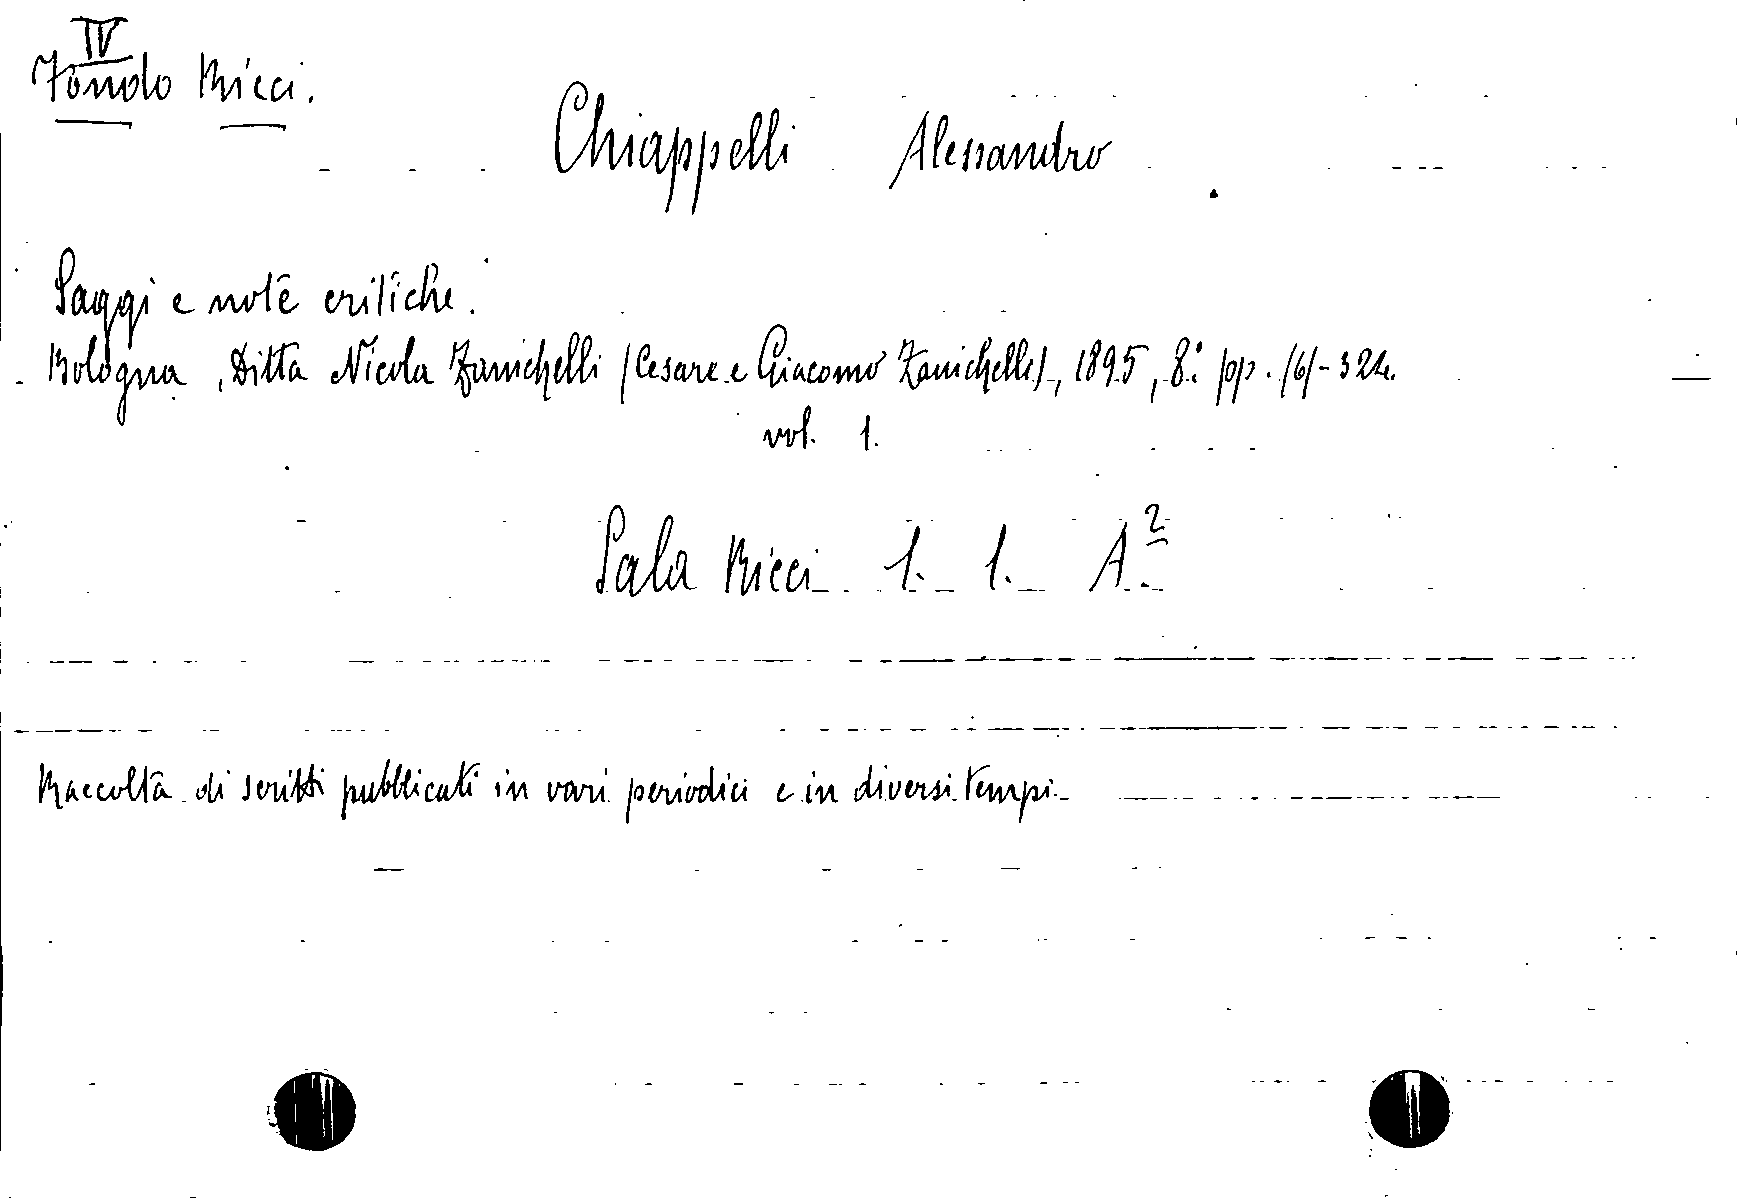 IV
Fondo Ricci.
Chiappelli Alessandro
Saggi e note critiche.
Bologna, Ditta Nicola Zanichelli (Cesare e Giacomo Zanichelli), 1895, 8.° pp. /6/-324.
vol. 1.
Sala Ricci 1. 1. A.²
Raccolta di scritti pubblicati in vari periodici e in diversi tempi.